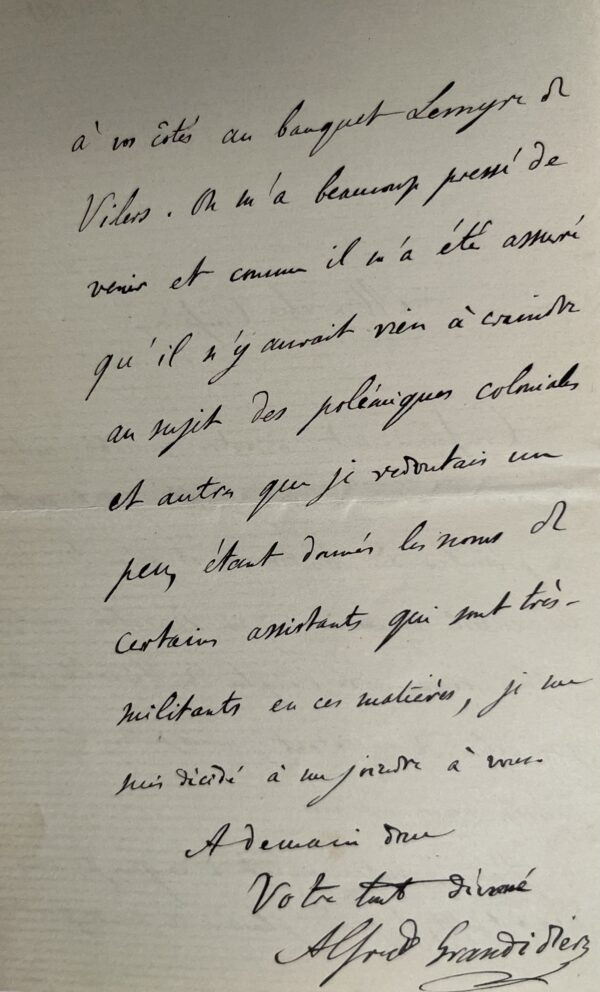 à vos côtés au banquet Lemyre de
Vilers. On m'a beaucoup pressé de
venir et comme il m'a été assuré
qu'il n'y aurait rien à craindre
au sujet des polémiques coloniales
et autres que je redoutais un
peu, étant donnés les noms de
certains assistants qui sont très-
militants en ces matières, je me
suis décidé à me joindre à vous.
A demain donc
Votre tout dévoué
Alfred Grandidier